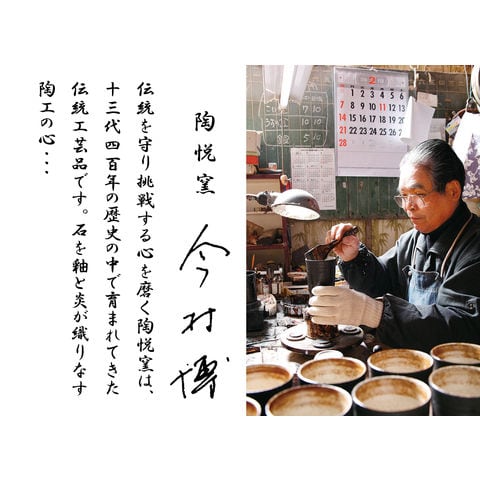 陶悦窯 今村博
伝統を守り挑戦する心を磨く陶悦窯は、
十三代四百年の歴史の中で育まれてきた
伝統工芸品です。石を釉と炎が織りなす
陶工の心・・・
2
1 2 3 4 5 6
7 8 9 10 11 12 13
14 15 16 17 18 19 20
21 22 23 24 25 26 27
28